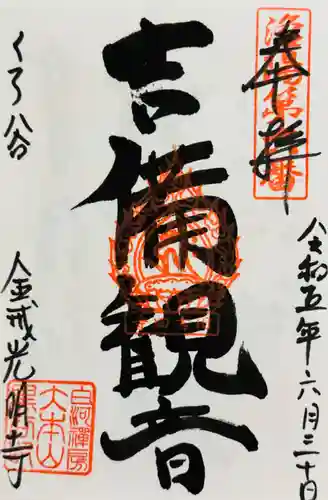 奉拝
令和五年六月三十日
吉備観音
くろ谷
金戒光明寺
白河禅房
大本山